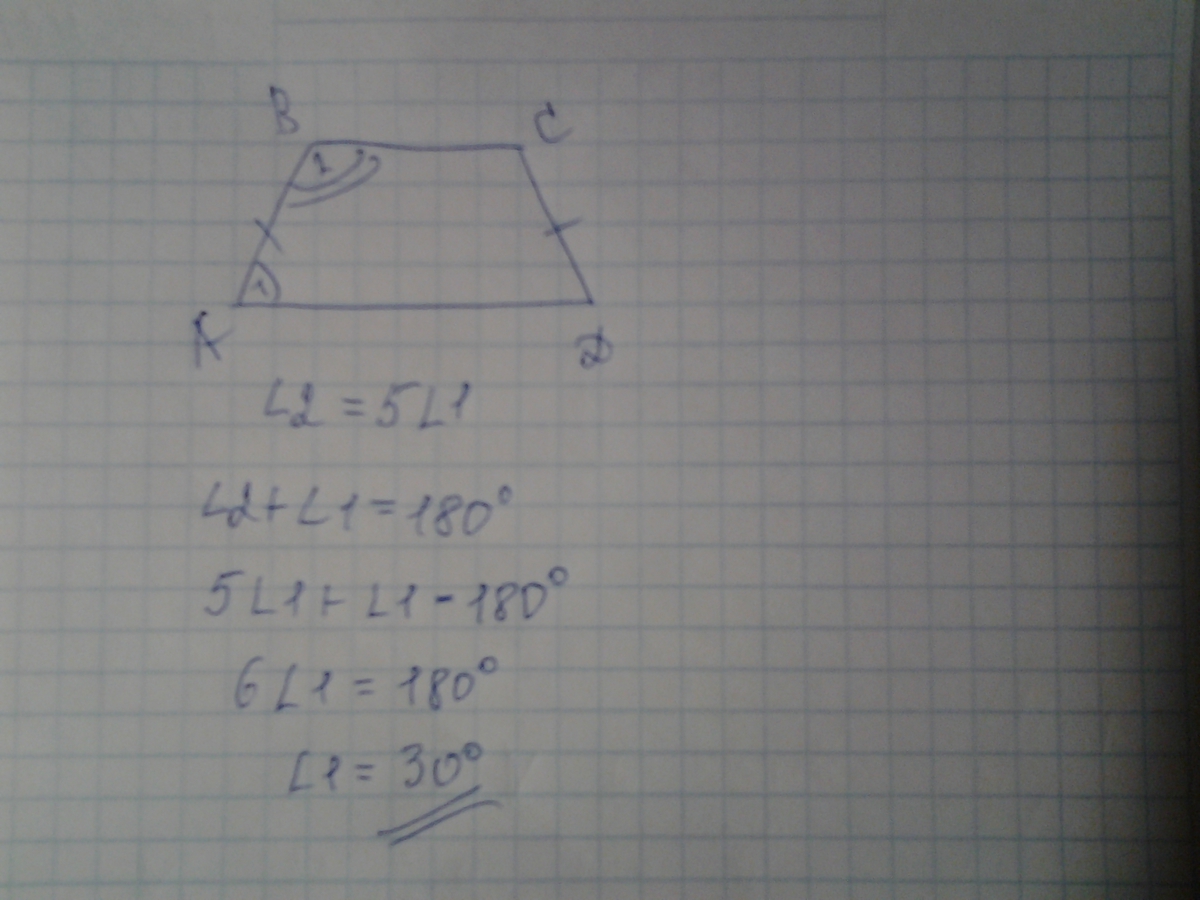 B C
2
1
A D
∠2 = 5∠1
∠2+∠1=180°
5∠1+∠1=180°
6∠1=180°
∠1=30°